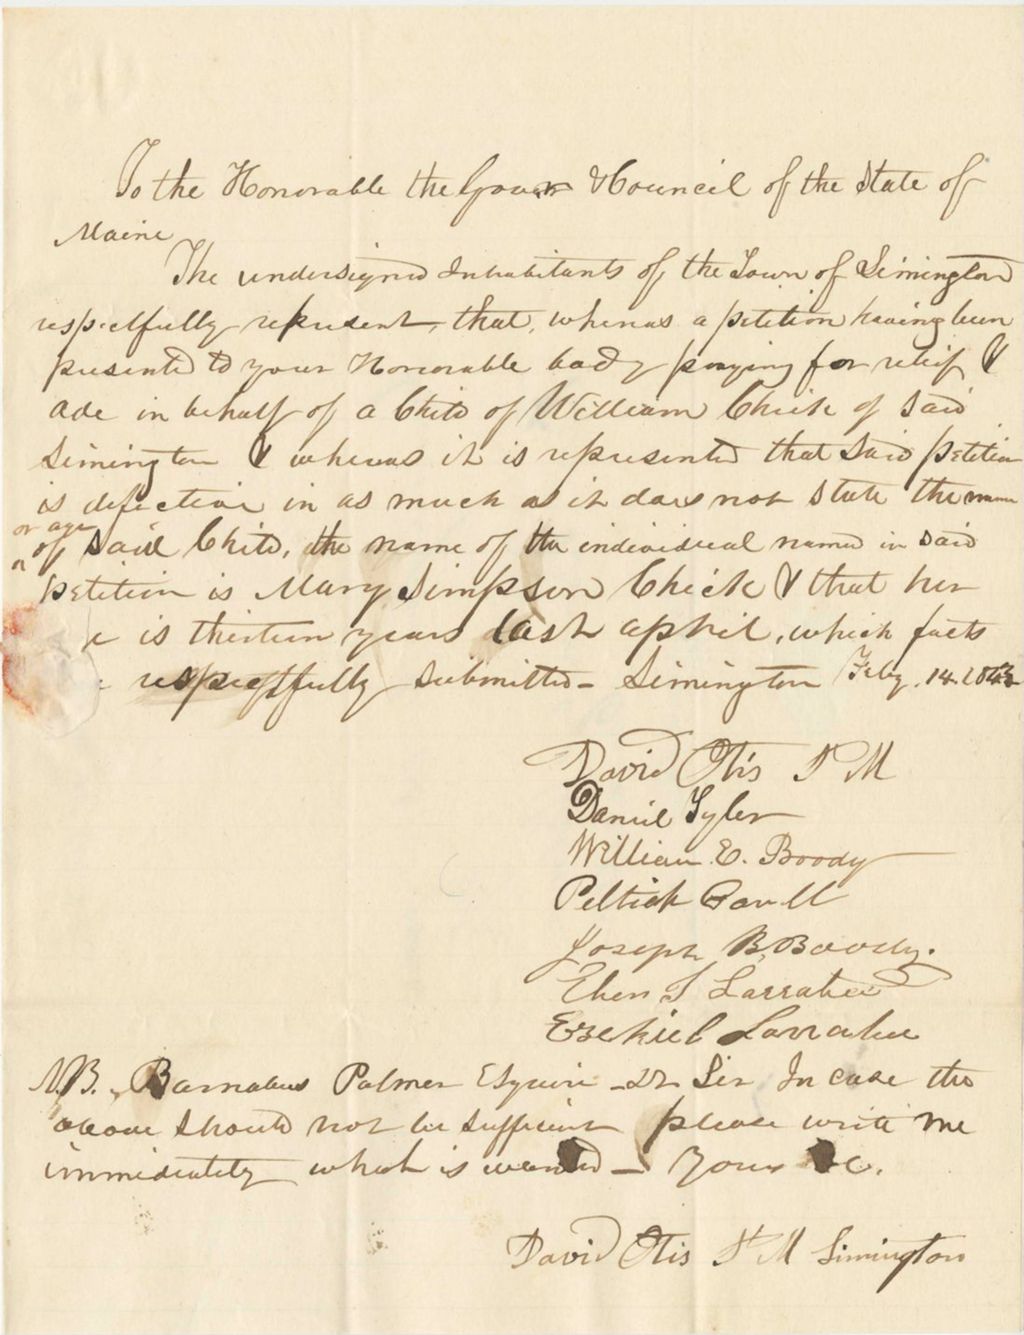 To the Honorable the Gover & Council of the State of
Maine
The undersigned Inhabitants of the Town of Limington
respectfully represent, that, whereas a petition having been
presented to your Honorable body praying for relief &
ade in behalf of a Child of William Chick of said
Limington & whereas it is represented that said petition
is defective in as much as it does not state the name
or age
of said Child, the name of the individual named in said
petition is Mary Simpson Chick & that her
is thirteen years last april, which facts
respectfully submitted - Limington Feby. 14.
David Otis P M
Daniel Tyler
William E. Boody
Joseph B. Boody.
Eben S Larrabee
Ezekiel Larrabee
N.B. Barnabas Palmer Esquire - Sir In case the
above should not be sufficient please write me
immediately what is wanted - Yours &c.
David Otis P M Limington